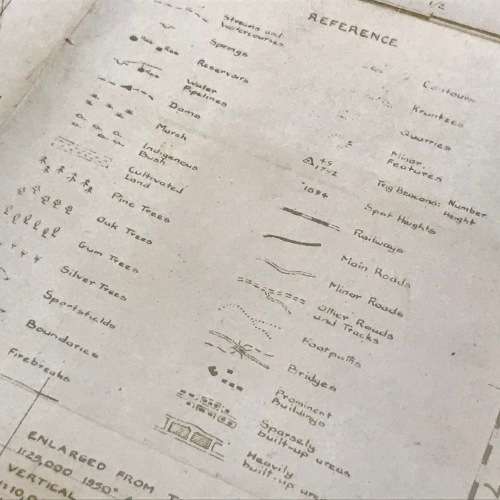 1/2
REFERENCE
Streams and
Watercourses
Springs
Reservoirs
Water
Pipelines
Dams
Marsh
Indigenous
Bush
Cultivated
Land
Pine Trees
Oak Trees
Gum Trees
Silver Trees
Sportsfields
Boundaries
Firebreaks
Contours
Krantzes
Quarries
Minor
Features
Trig Beacons: Number
Height
Spot Heights
Railways
Main Roads
Minor Roads
Other Roads
and Tracks
Footpaths
Bridges
Prominent
Buildings
Sparsely
built-up areas
Heavily
built-up
ENLARGED FROM
1:25,000 1950
VERTICAL